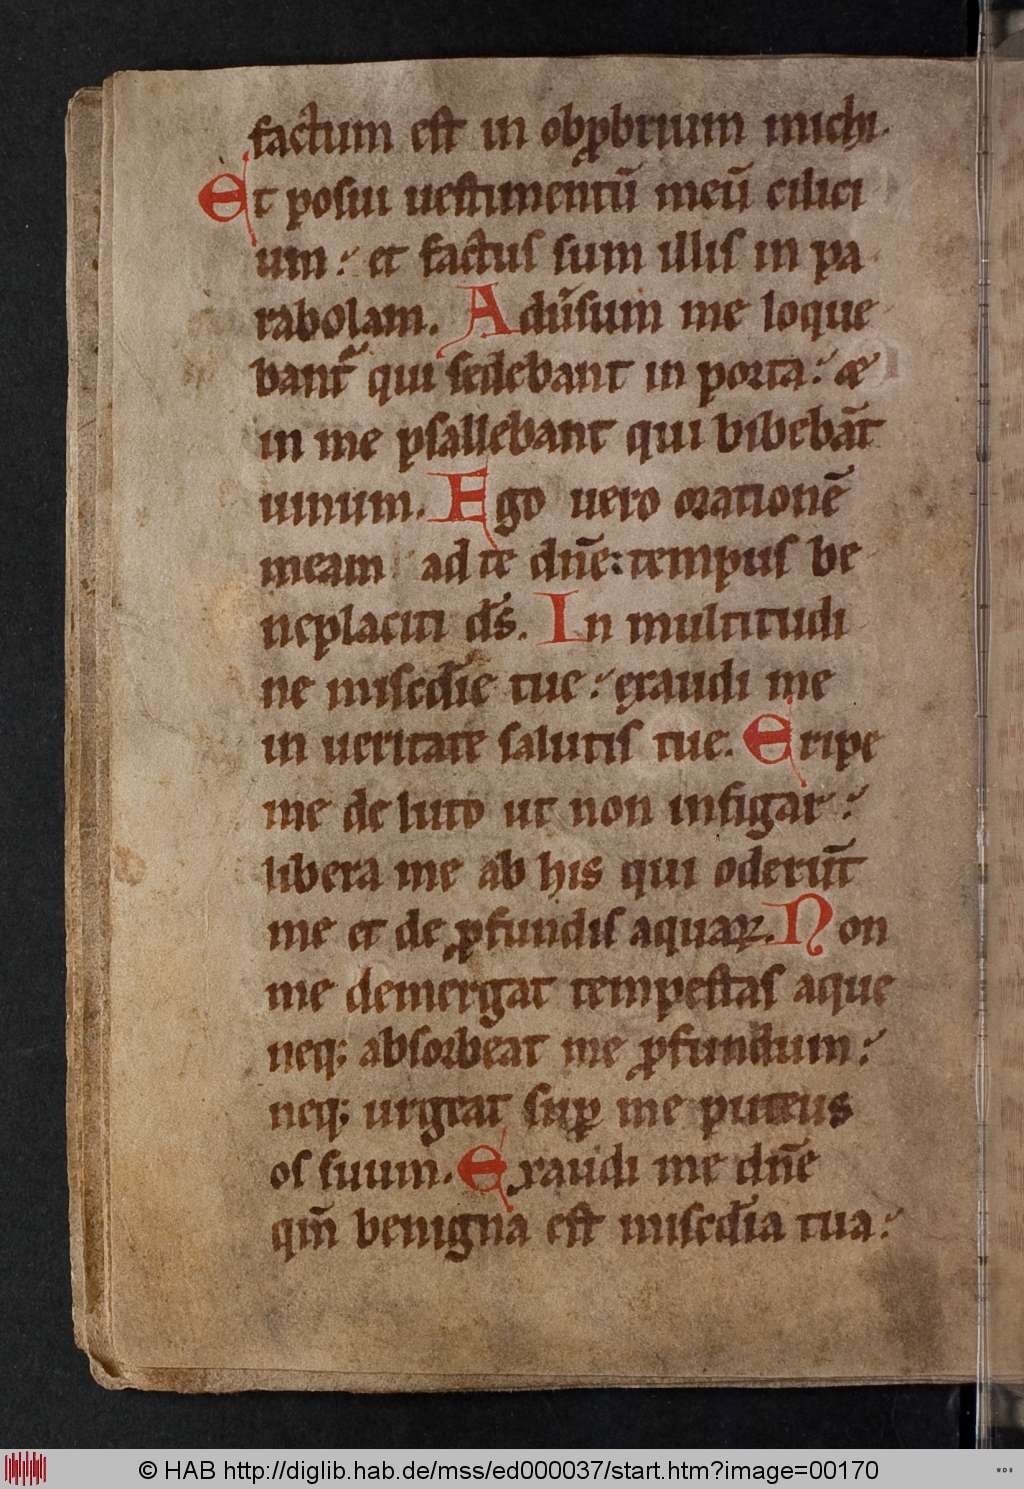 factum est in obꝓbrium michi.
Et posui uestimentū meū cilici
um: et factus sum illis in pa
rabolam. Adu̅sum me loque
bant᷑ qui sedebant in porta: &
in me psallebant qui bibebāt
uinum. Ego uero orationē
meam ad te dn̄e: tempus be
neplaciti ds̄. In multitudi
ne misc̄die tue: exaudi me
in ueritate salutis tue. Eripe
me de luto ut non infigar:
libera me ab his qui oderūt
me et de ꝓfundis aquaꝝ. Non
me demergat tempestas aque
neq; absorbeat me ꝓfundum:
neq; urgeat suꝑ me puteus
os suum. Exaudi me dn̄e
qm̄ benigna est misc̄dia tua:
© HAB http://diglib.hab.de/mss/ed000037/start.htm?image=00170